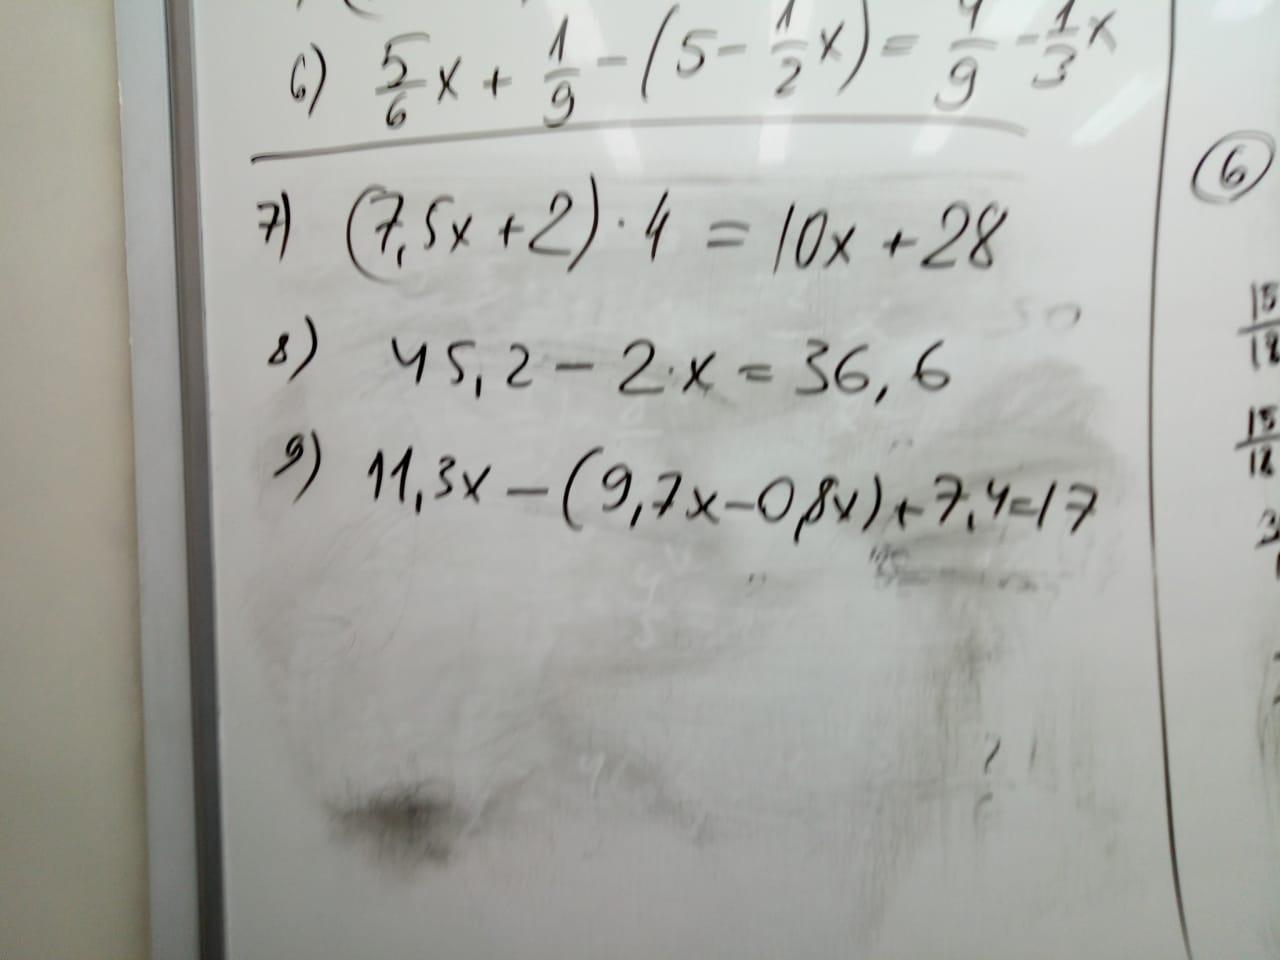 6) 5/6 x + 1/9 - (5 - 1/2 x) = 4/9 - 1/3 x
7) (7,5x + 2) · 4 = 10x + 28
8) 45,2 - 2·x = 36,6
9) 11,3x - (9,7x - 0,8x) + 7,4 = 17
6
15/18
15/18
3